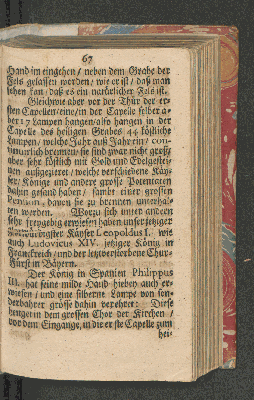 67
Hand im eingehen / neben dem Grabe der
Fels gelassen worden / wie er ist / daß man
sehen kan / daß es ein natürlicher Fels ist.
Gleichwie aber vor der Thür der er-
sten Capellen eine / in der Capelle selber a-
ber 17 Lampen hangen / also hangen in der
Capelle des heiligen Grabes 44 köstliche
Lampen / welche Jahr auß Jahr ein / con-
tinuirlich brennen / sie sind zwar nicht groß /
aber sehr köstlich mit Gold und Edelgestei-
nen außgezieret / welche verschiedene Käy-
ser / Könige und andere grosse Potentaten
dahin gesand haben / sambt einer grossen
Pension, davon sie zu brennen unterhal-
ten werden. Worzu sich unter andern
sehr freygebig erwiesen haben unser jetziger
Käyser Leopoldus I. wie
auch Ludovicus XIV. jetziger König in
Franckreich / und der letzverstorbene Chur-
Fürst in Bäyern.
Der König in Spanien Philippus
III. hat seine milde Hand hieben auch er-
wiesen / und eine silberne Lampe von son-
derbahrer grösse dahin verehret: Diese
henget in dem grossen Chor der Kirchen /
vor dem Eingange, in die erste Capelle zum
hei-